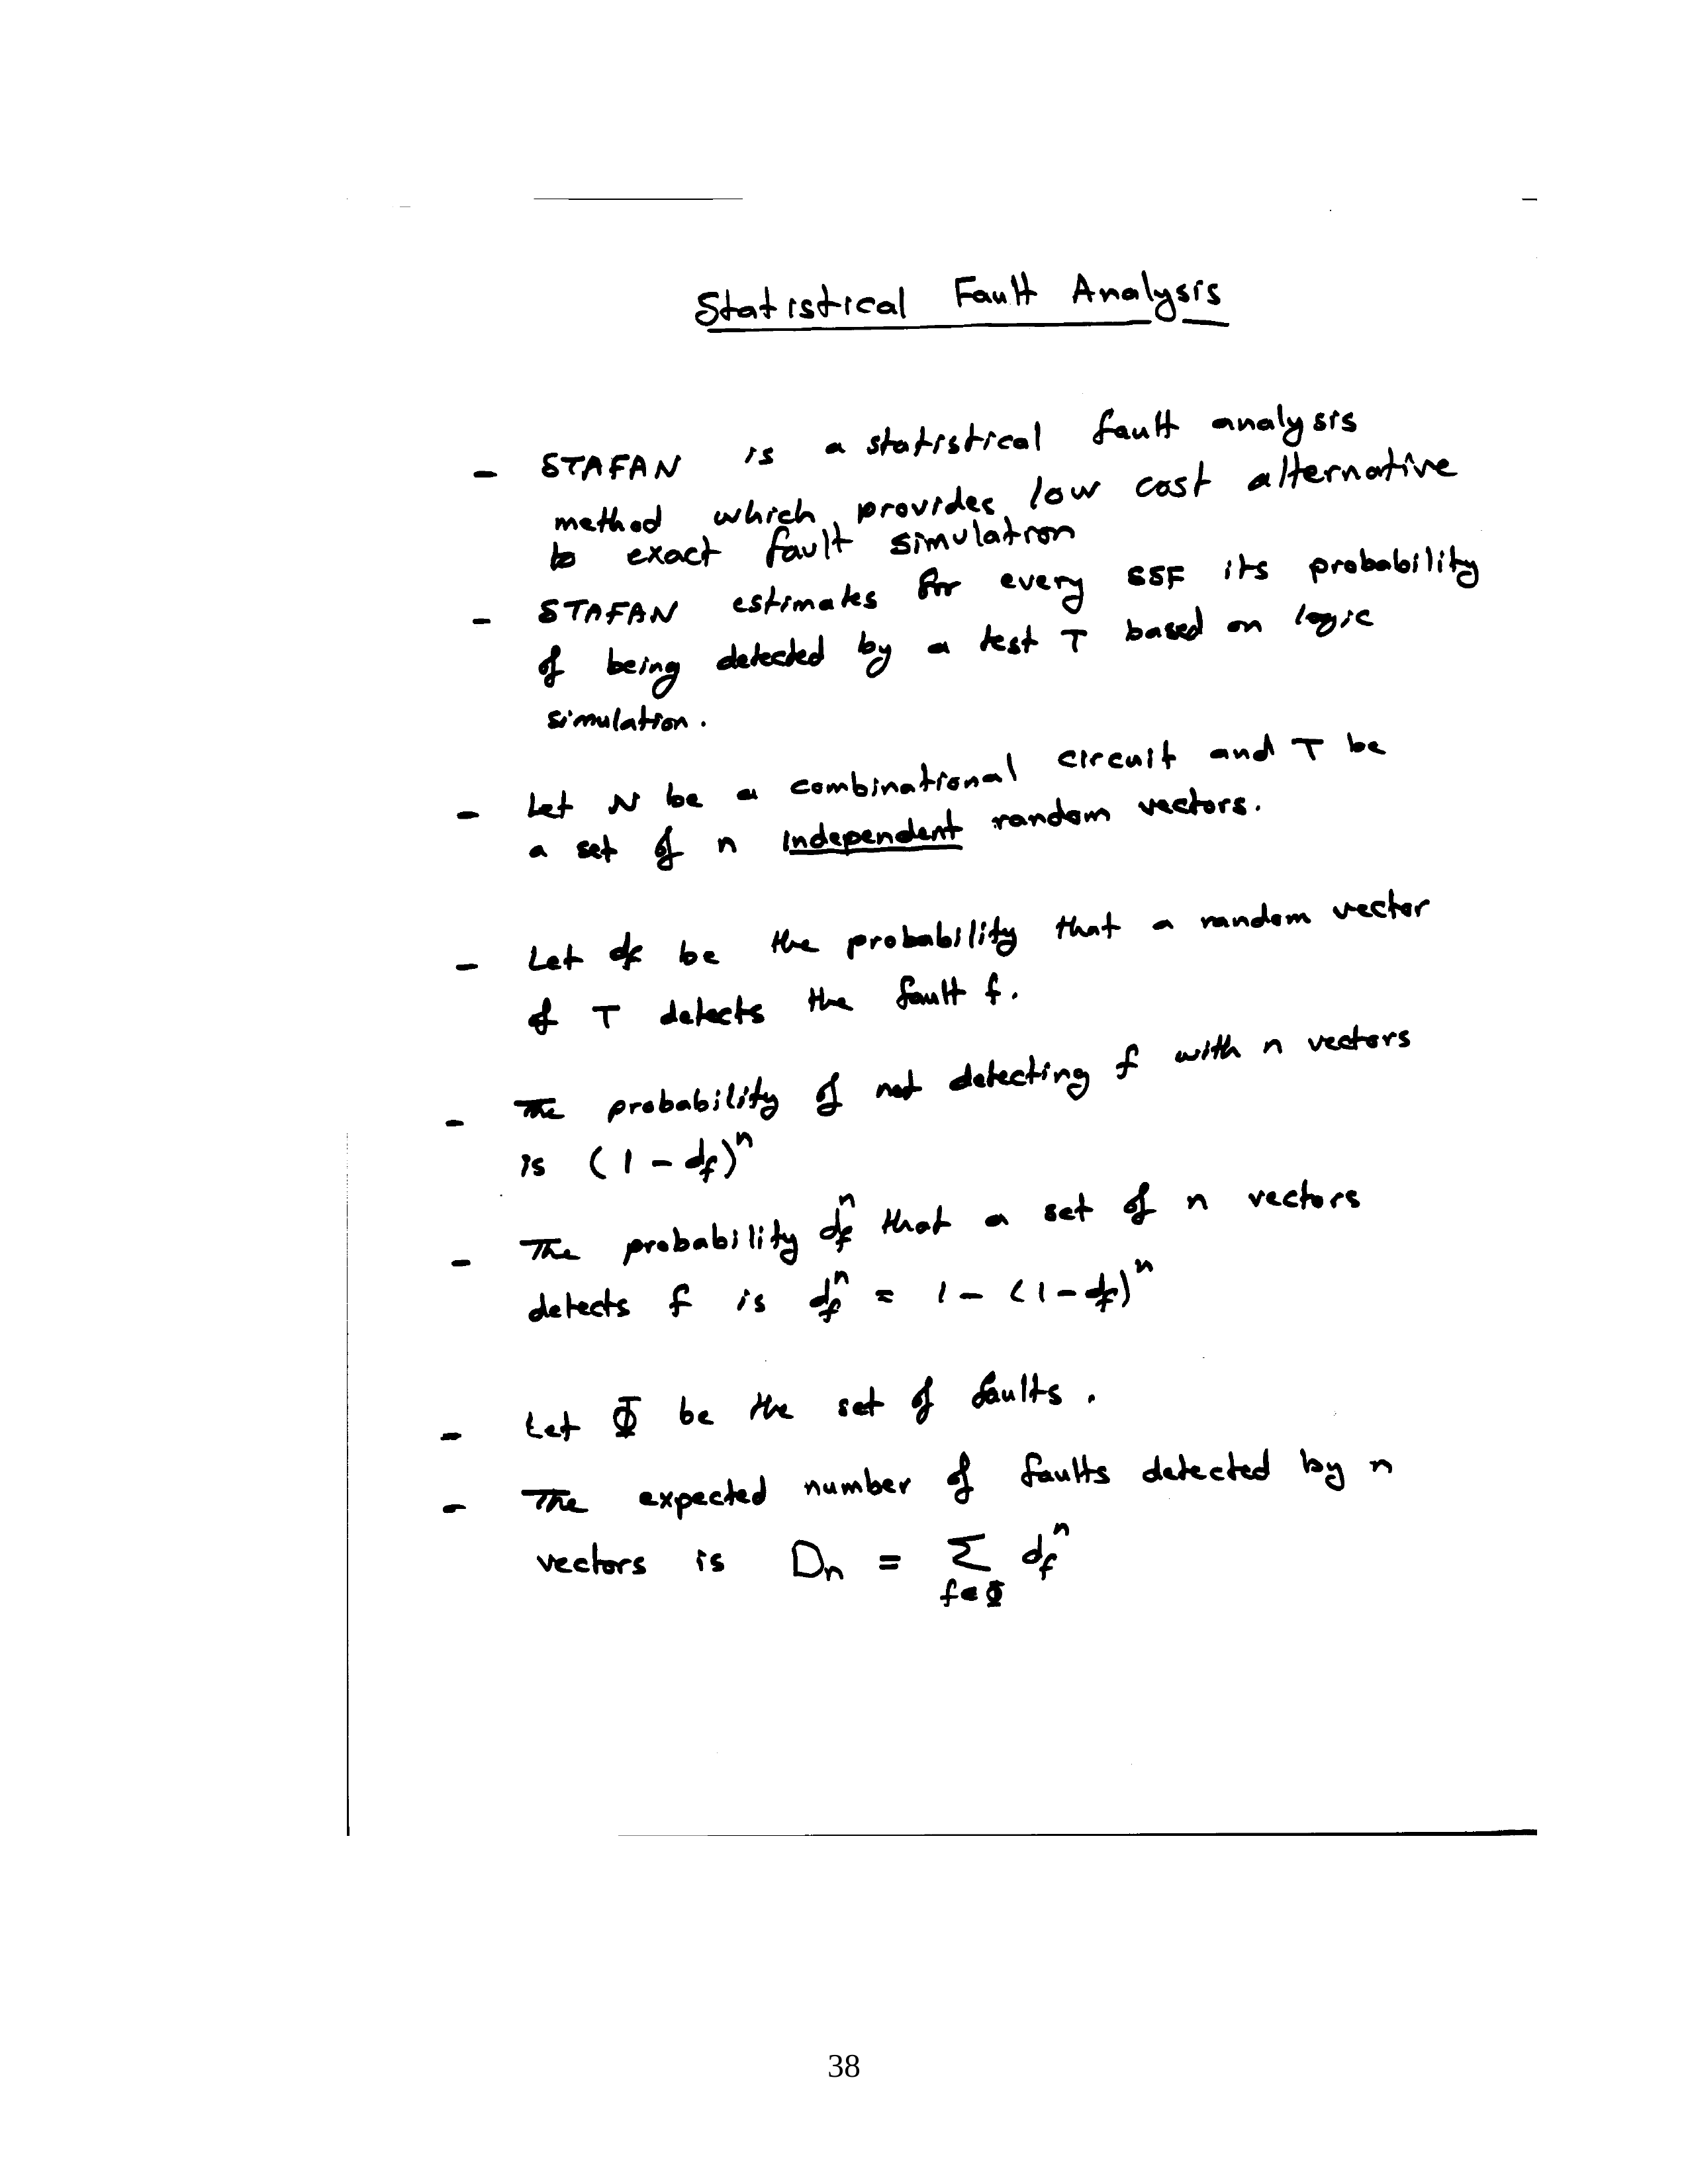 Statistical Fault Analysis
- STAFAN is a statistical fault analysis
method which provides low cost alternative
to exact fault simulation
- STAFAN estimates for every SSF its probability
of being detected by a test T based on logic
simulation.
- Let N be a combinational circuit and T be
a set of n independent random vectors.
- Let df be the probability that a random vector
of T detects the fault f.
- The probability of not detecting f with n vectors
is (1 - df)^n
- The probability df^n that a set of n vectors
detects f is df^n = 1 - (1 - df)^n
- Let Φ be the set of faults.
- The expected number of faults detected by n
vectors is Dn = Σ df^n
f∈Φ
38